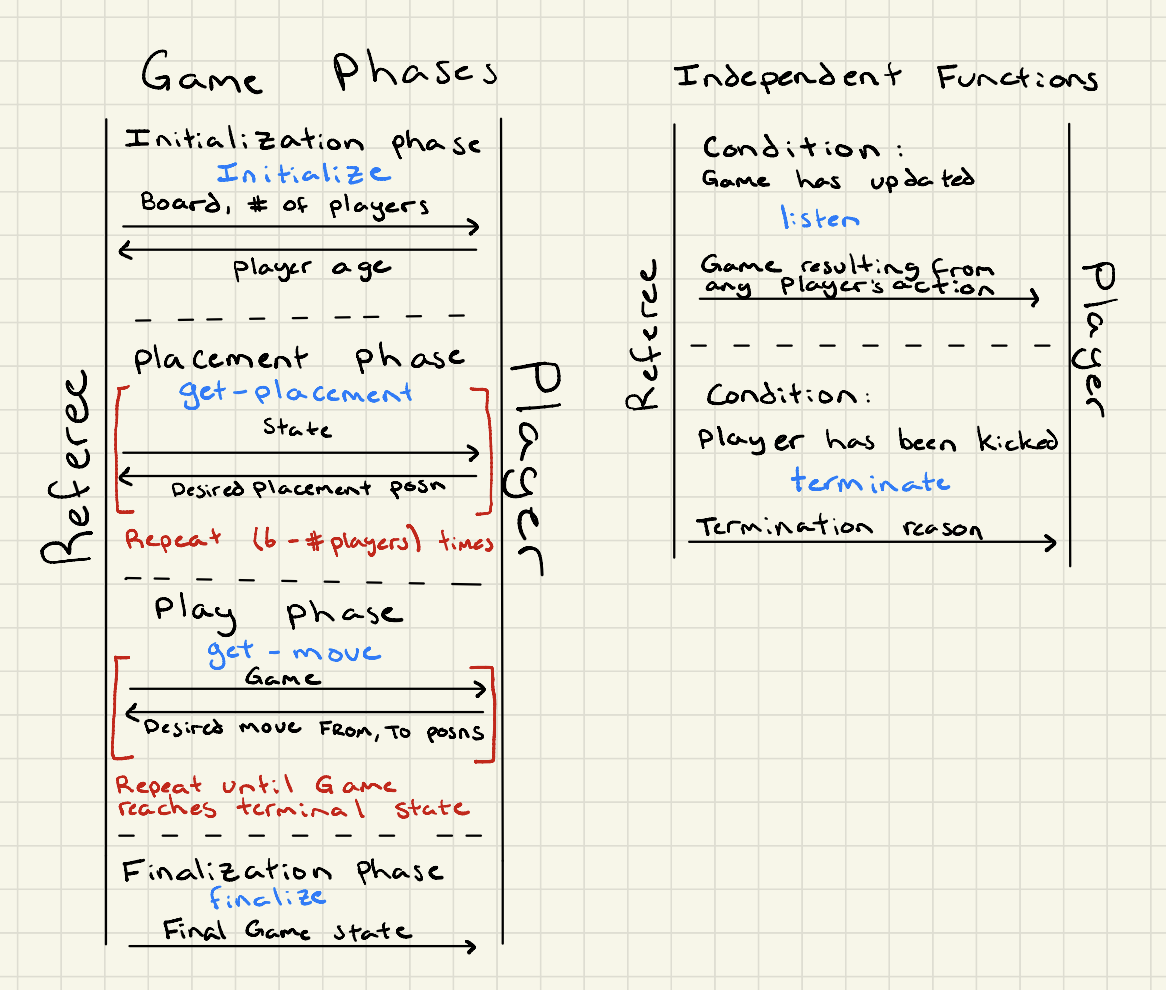 Game Phases
Initialization phase
Initialize
Board, # of players
player age
Placement phase
get-placement
State
Desired Placement posn
Repeat (6 - # players) times
Play phase
get - move
Game
Desired move From, To posns
Repeat until Game
reaches terminal state
Finalization Phase
finalize
Final Game state
Referee
Player
Independent Functions
Condition :
Game has updated
listen
Game resulting from
any Player's action
Condition:
Player has been kicked
terminate
Termination reason
Referee
Player